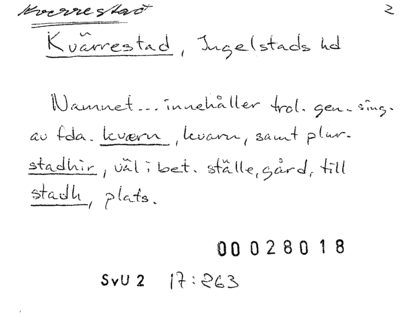 Kverrestad 2
Kvärrestad, Ingelstads hd
Namnet... innehåller trol. gen. sing.
av fda. kværn, kvarn, samt plur.
stadhir, väl i bet. ställe, gård, till
stadh, plats.
00028018
SvU 2 17:263